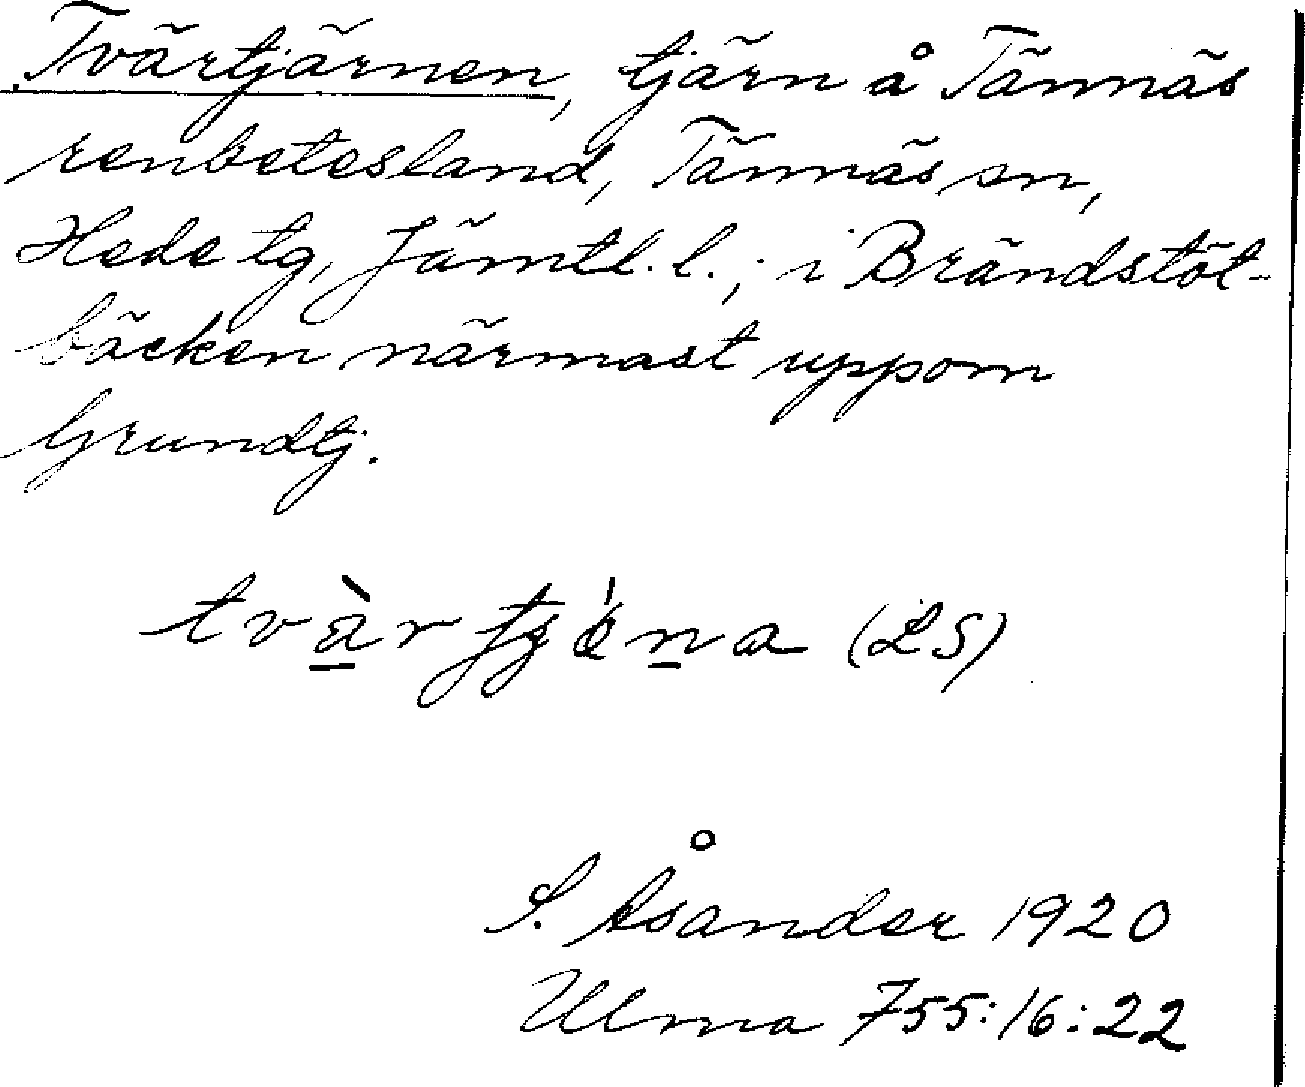 Tvärtjärnen, tjärn å Tännäs
renbetesland, Tännäs sn,
Hede tg, Jämtl. l.; i Brändstöt-
bäcken närmast uppom
Grundtj.
(LS)
S. Åsander 1920
Ulma 755:16:22